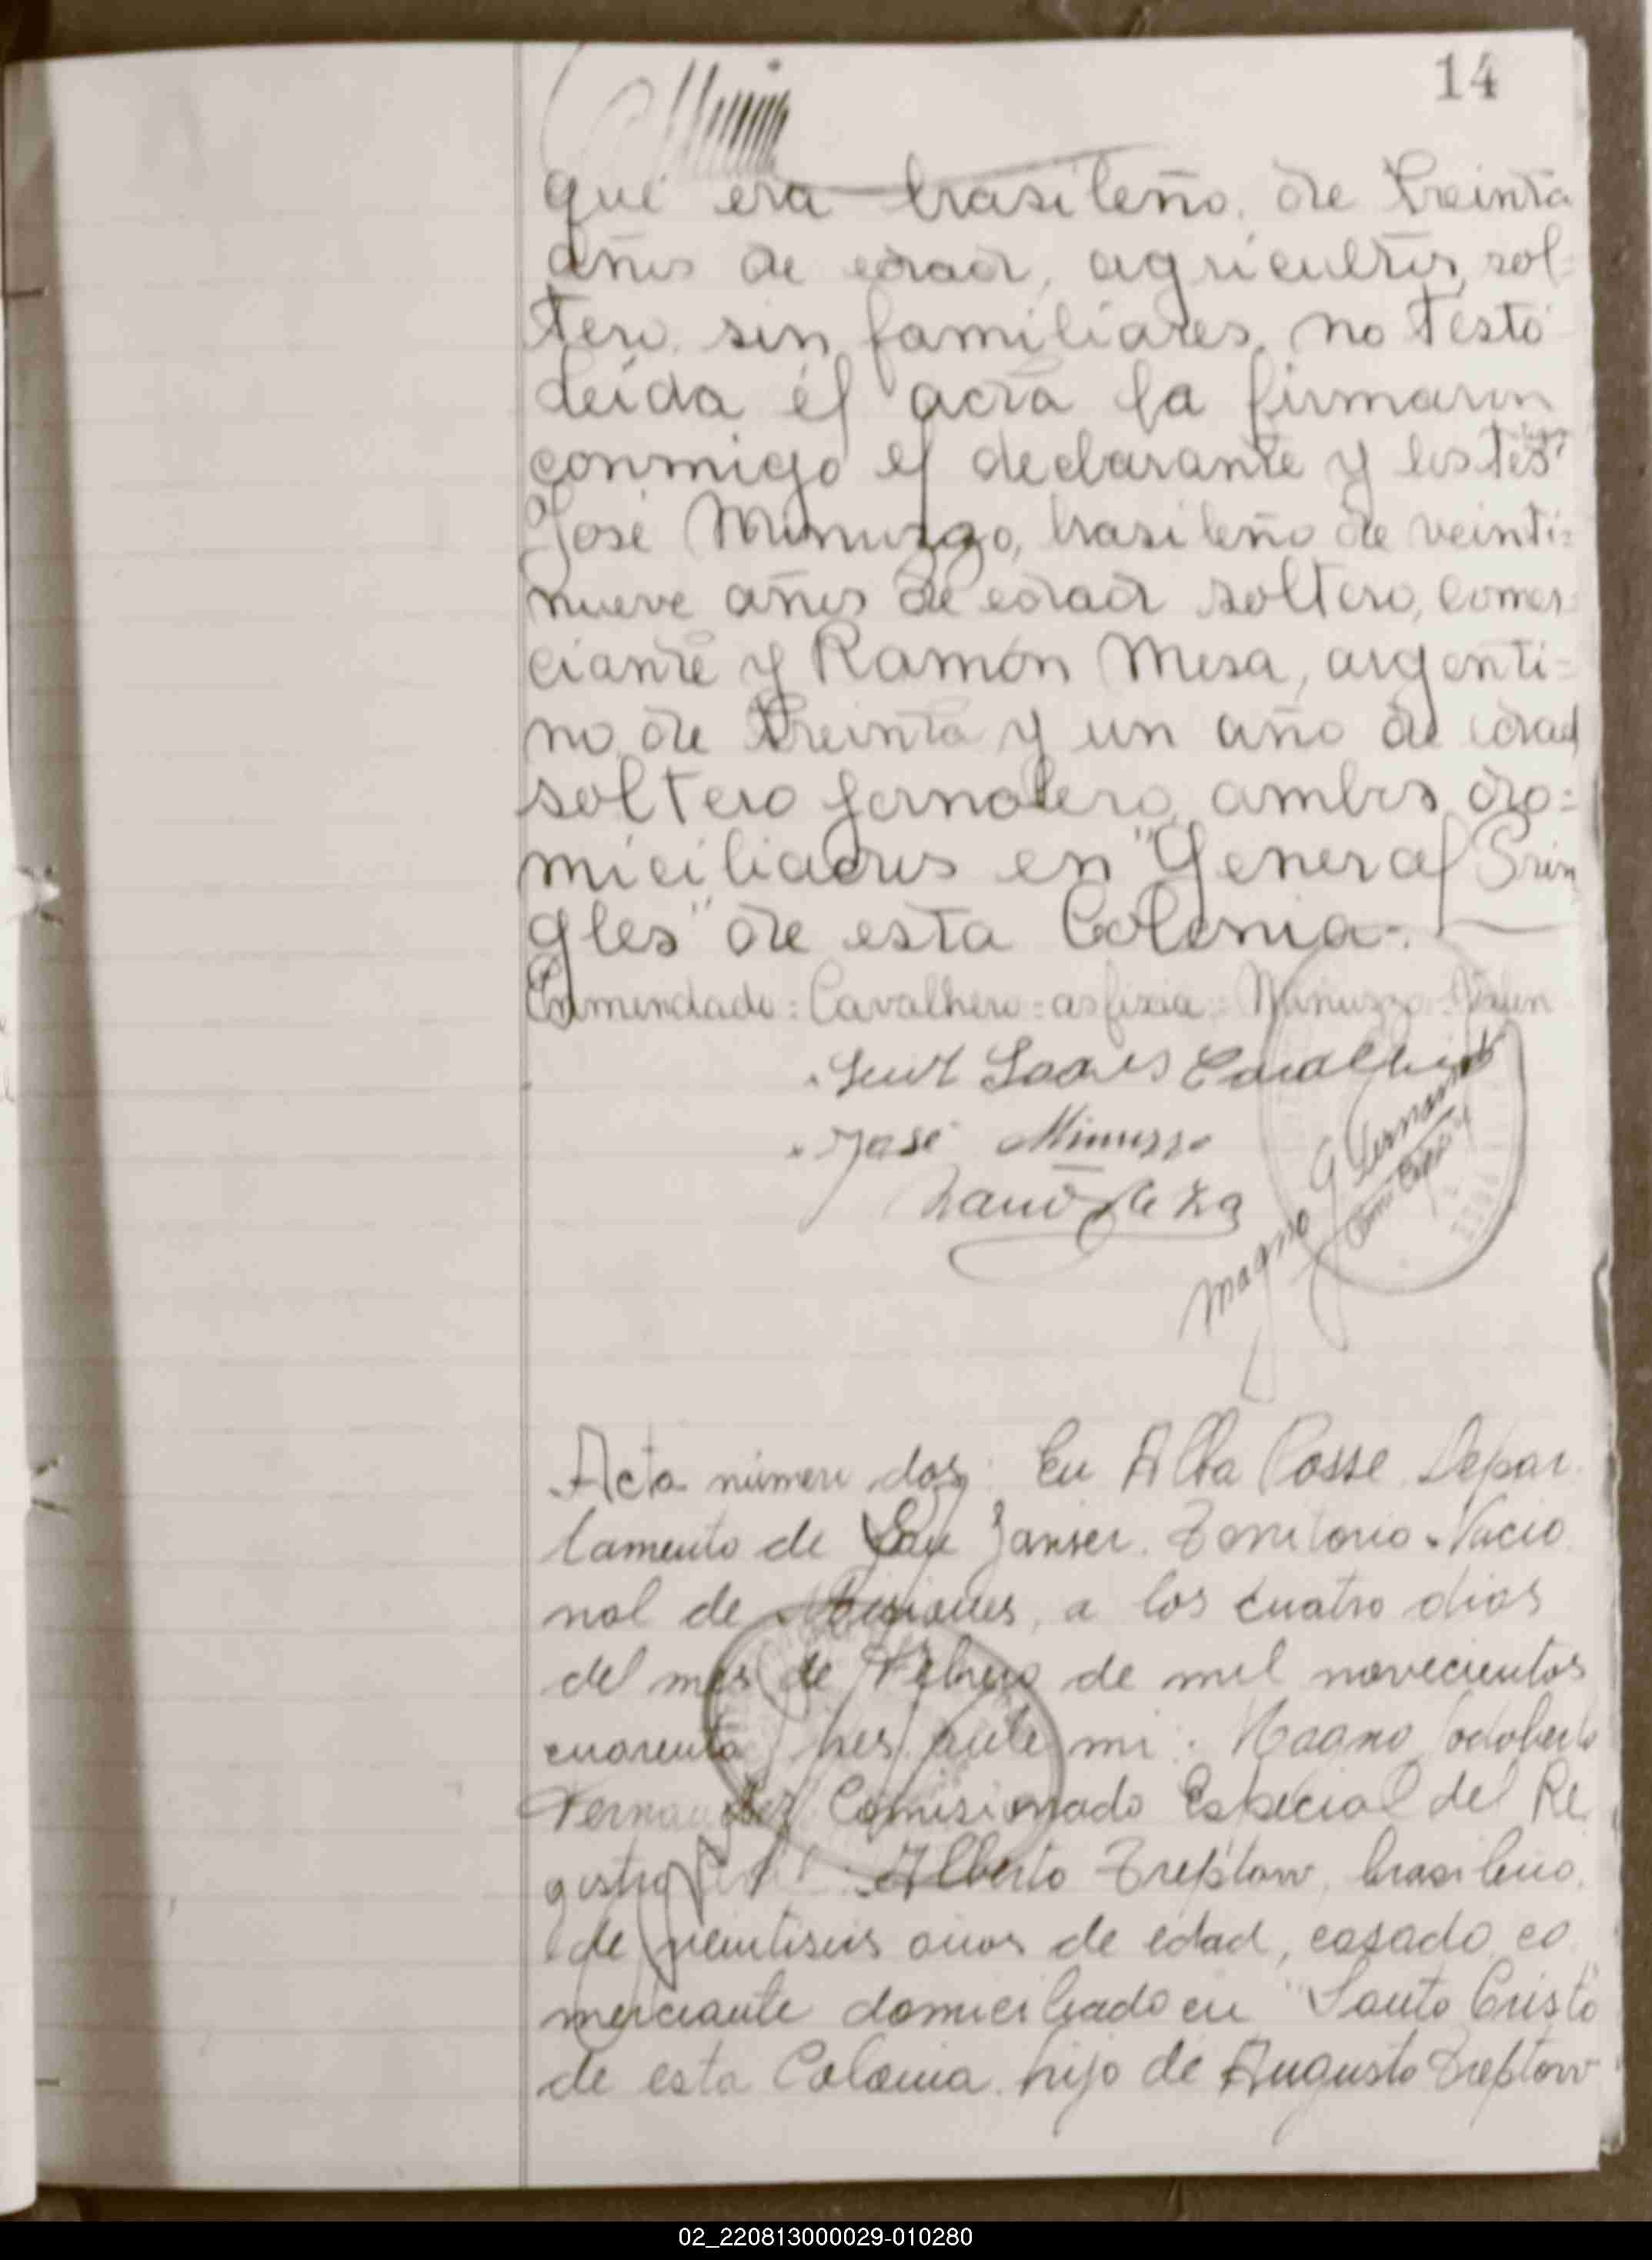 14
que era brasileño, de treinta
años de edad, agricultor, sol=
tero, sin familiares, no testó
Leída el acta la firmaron
conmigo el declarante y los tes
José Minuzzo, brasileño de veinti=
nueve años de edad soltero, comer
ciante y Ramón Mesa, argenti=
no de treinta y un año de edad
soltero jornalero, ambos do=
miciliados en "General Prin
gles" de esta Colonia-.
Enmendado: Cavalhero=asfixia=Minuzzo=
José Minuzzo
Magno G Fernandez
Acta número dos: En Alba Posse Depar
tamento de San Javier. Territorio Nacio
nal de Misiones, a los cuatro dias
del mes de Febrero de mil novecientos
cuarenta y tres, ante mi: Magno Godoberto
Fernandez Comisionado Especial del Re
gistro Civil: Alberto Treptow, brasileno,
de veintiseis años de edad, casado, co
merciante domiciliado en "Santo Cristo"
de esta Colonia, hijo de Augusto Treptow
02_220813000029-010280